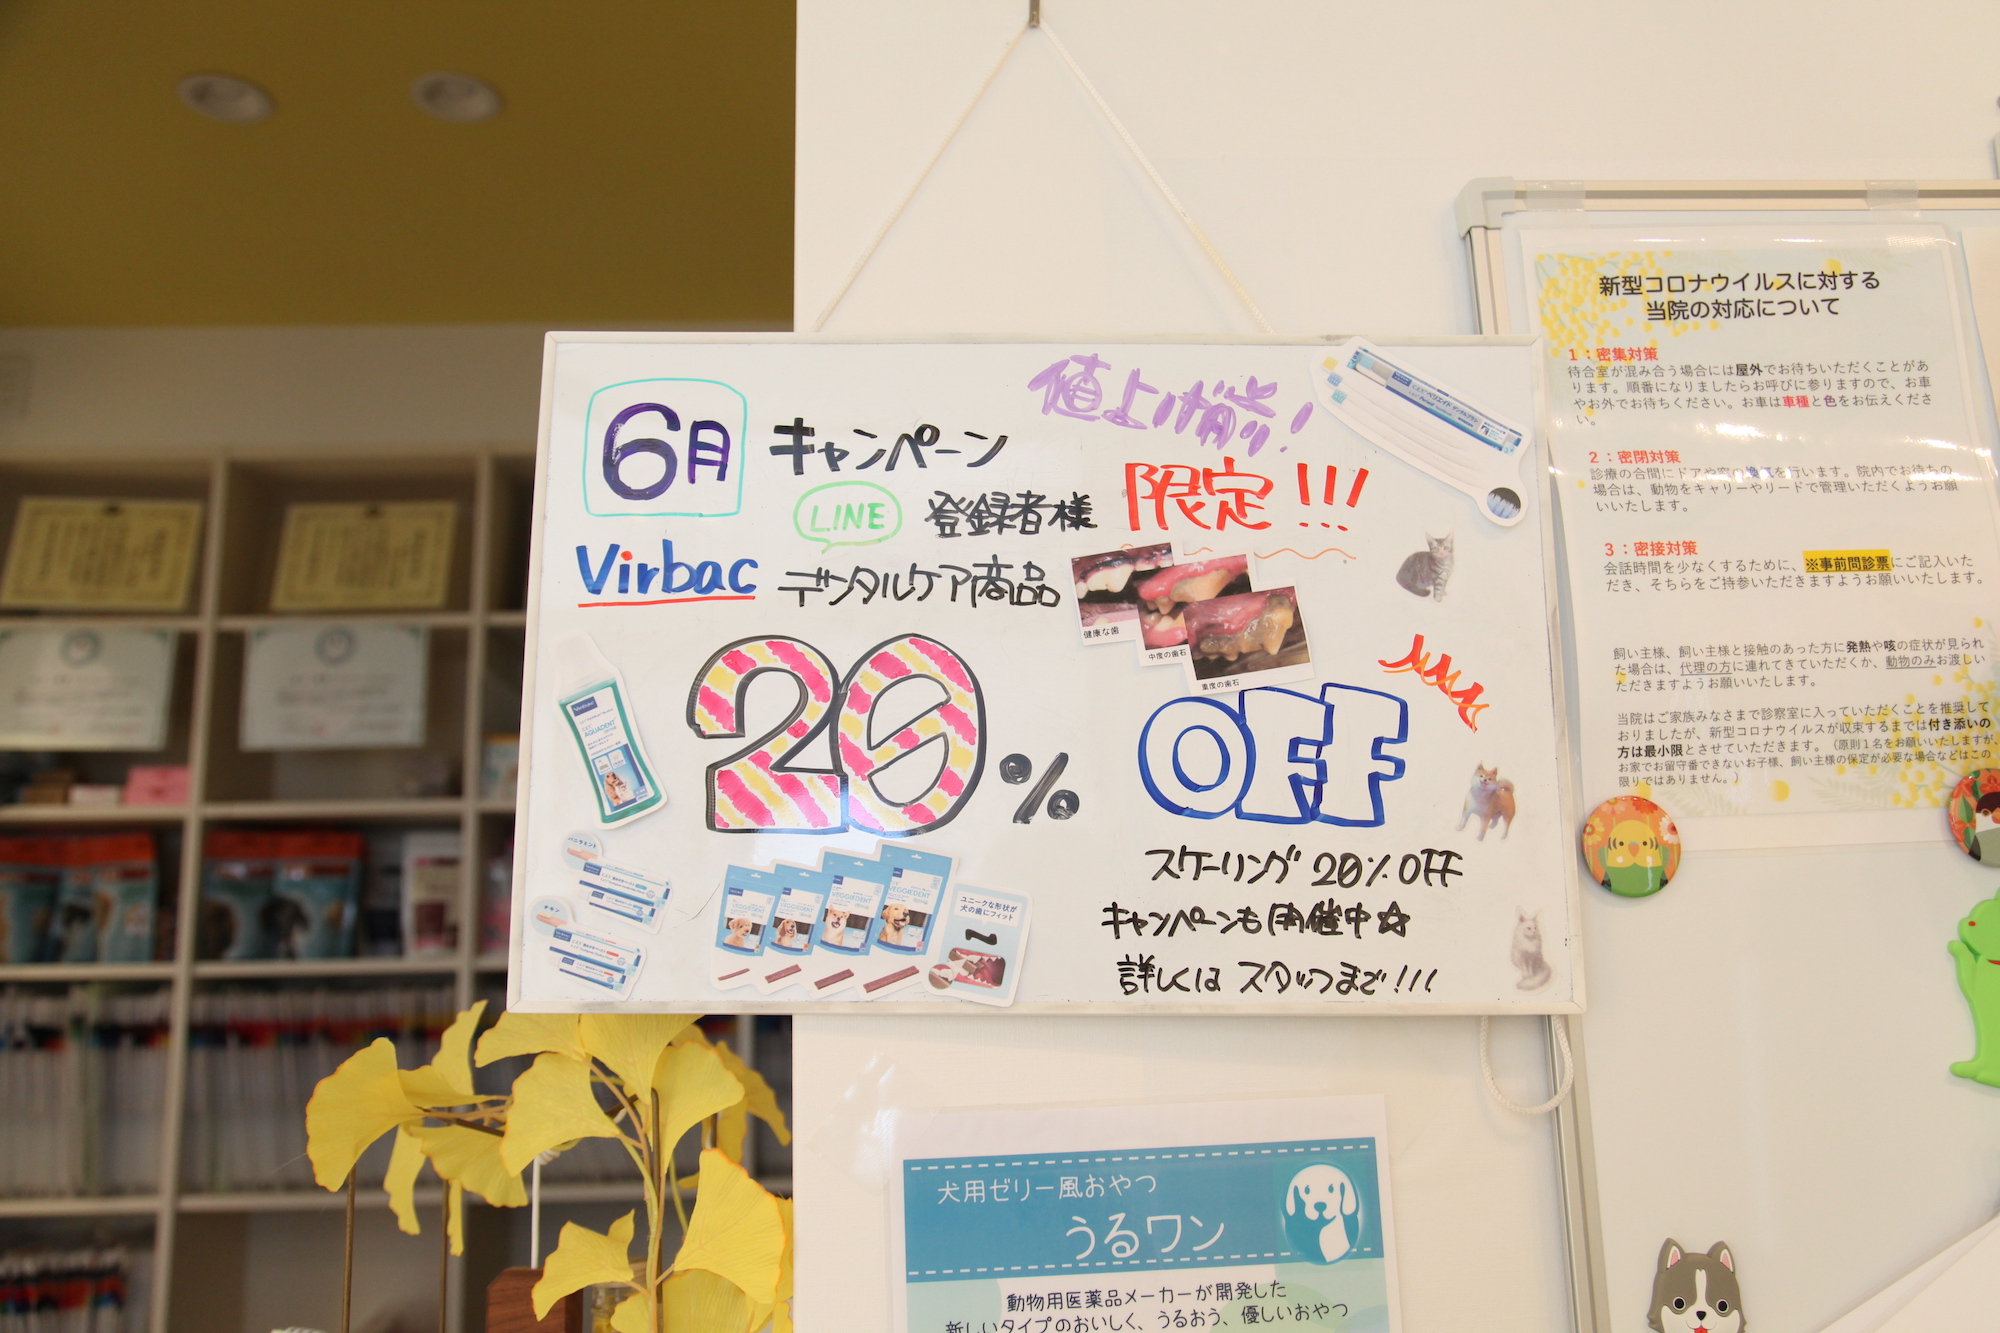 値上げ前!
6月 キャンペーン
LINE 登録者様 限定!!!
Virbac デンタルケア商品
20% OFF
健康な歯
中度の歯石
重度の歯石
スケーリング 20% OFF
キャンペーンも開催中☆
詳しくは スタッフまで!!!
Virbac
AQUADENT
バニラミント
チキン
VEGGIEDENT
VEGGIEDENT
VEGGIEDENT
VEGGIEDENT
ユニークな形状が
犬の歯にフィット
新型コロナウイルスに対する
当院の対応について
1:密集対策
待合室が混み合う場合には屋外でお待ちいただくことがあ
ります。順番になりましたらお呼びに参りますので、お車
やお外でお待ちください。お車は車種と色をお伝えくださ
い。
2:密閉対策
診療の合間にドアや窓の換気を行います。院内でお待ちの
場合は、動物をキャリーやリードで管理いただくようお願
いいたします。
3:密接対策
会話時間を少なくするために、※事前問診票にご記入いた
だき、そちらをご持参いただきますようお願いいたします。
飼い主様、飼い主様と接触のあった方に発熱や咳の症状が見られ
た場合は、代理の方に連れてきていただくか、動物のみお渡しい
ただきますようお願いいたします。
当院はご家族みなさまで診察室に入っていただくことを推奨して
おりましたが、新型コロナウイルスが収束するまでは付き添いの
方は最小限とさせていただきます。(原則1名をお願いいたしますが、
お家でお留守番できないお子様、飼い主様の保定が必要な場合などはこの
限りではありません。)
犬用ゼリー風おやつ
うるワン
動物用医薬品メーカーが開発した
新しいタイプのおいしく、うるおう、優しいおやつ